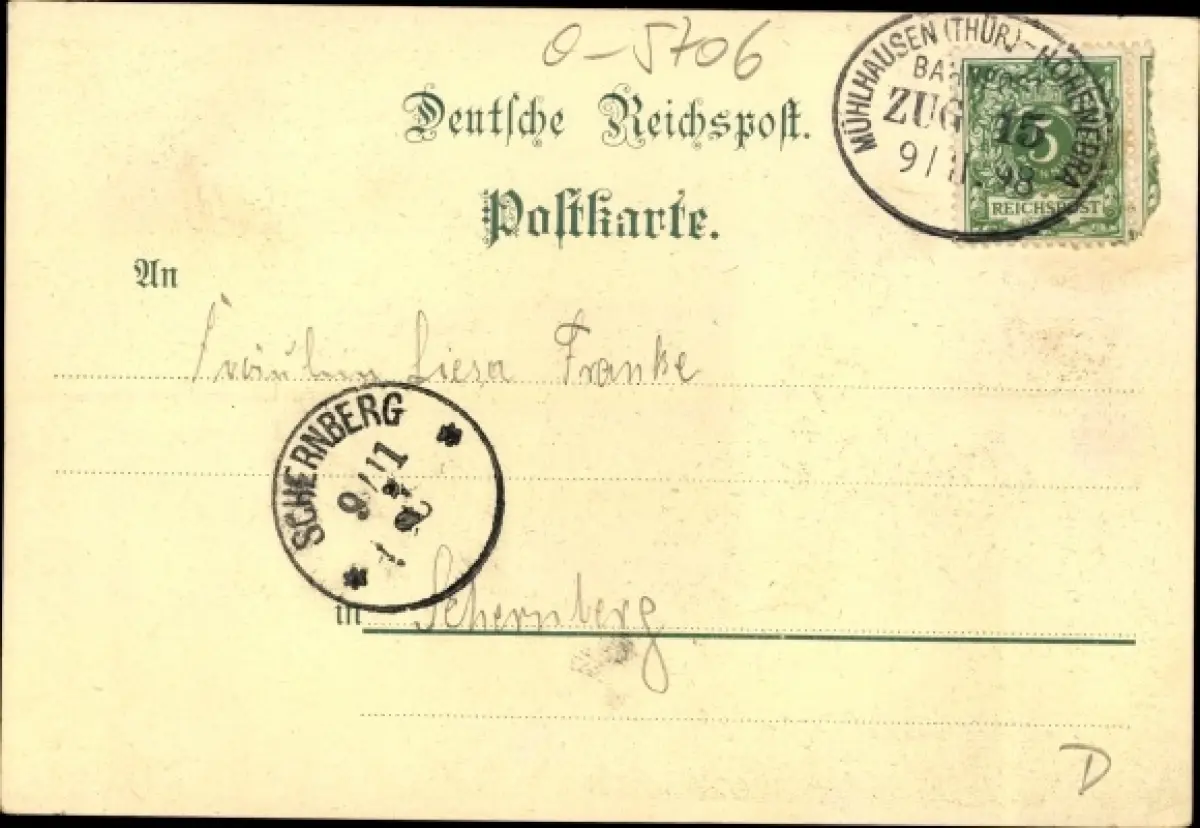 0-5706
Deutsche Reichspost.
Postkarte.
MÜHLHAUSEN (THÜR)-HOHENEBRA
BAHNPOST
ZUG 15
9/11.98
5
REICHSPOST
An
Fräulein Liesa Franke
SCHERNBERG
9/11
in Schernberg
D